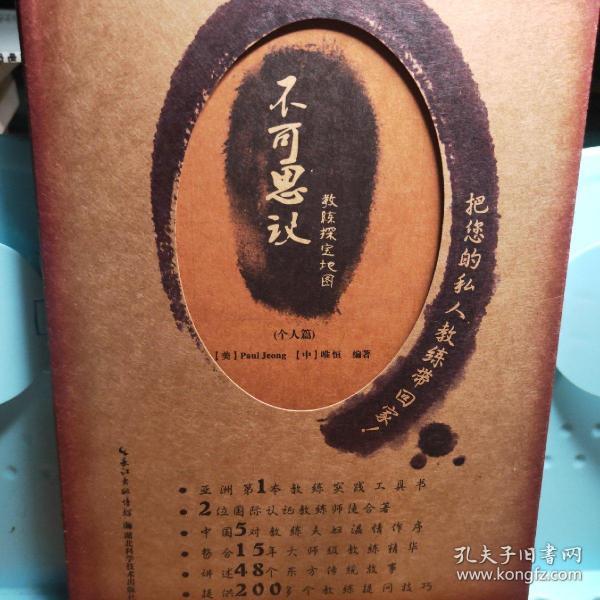 不可思议
教练探宝地图
(个人篇)
【美】Paul Jeong 【中】唯恒 编著
把您的私人教练带回家!
长江出版传媒
湖北科学技术出版社
• 亚洲第1本教练实践工具书
• 2位国际认证教练师徒合著
• 中国5对教练夫妇温情作序
• 整合15年大师级教练精华
• 讲述48个东方传统故事
• 提供200多个教练提问技巧
孔夫子旧书网
www.kongfz.com